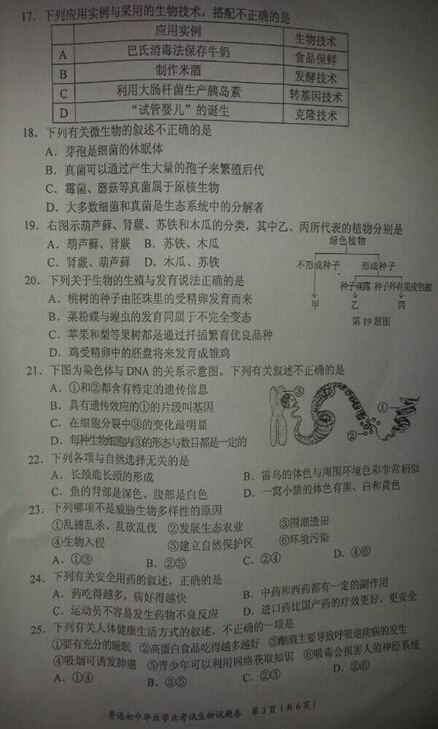 17. 下列应用实例与采用的生物技术，搭配不正确的是
应用实例 生物技术
A 巴氏消毒法保存牛奶 食品保鲜
B 制作米酒 发酵技术
C 利用大肠杆菌生产胰岛素 转基因技术
D “试管婴儿”的诞生 克隆技术
18. 下列有关微生物的叙述不正确的是
A. 芽孢是细菌的休眠体
B. 真菌可以通过产生大量的孢子来繁殖后代
C. 霉菌、蘑菇等真菌属于原核生物
D. 大多数细菌和真菌是生态系统中的分解者
19. 右图示葫芦藓、肾蕨、苏铁和木瓜的分类，其中乙、丙所代表的植物分别是
A. 葫芦藓、肾蕨 B. 苏铁、木瓜
C. 肾蕨、葫芦藓 D. 木瓜、苏铁
绿色植物
不形成种子 形成种子
种子裸露 种子外有果皮包被
甲 乙 丙
第 19 题图
20. 下列关于生物的生殖与发育说法正确的是
A. 桃树的种子由胚珠里的受精卵发育而来
B. 菜粉蝶与蝗虫的发育同属于不完全变态
C. 苹果和梨等果树都是通过扦插繁育优良品种
D. 鸡受精卵中的胚盘将来发育成雏鸡
21. 下图为染色体与 DNA 的关系示意图。下列有关叙述不正确的是
A. ①和②都含有特定的遗传信息
B. 具有遗传效应的①的片段叫基因
C. 在细胞分裂中③的变化最明显
D. 每种生物细胞内③的形态与数目都是一定的
③ ① ②
22. 下列各项与自然选择无关的是
A. 长颈鹿长颈的形成 B. 雷鸟的体色与周围环境色彩非常相似
C. 鱼的背部是深色、腹部是白色 D. 一窝小猫的体色有黑、白和黄色
23. 下列哪项不是威胁生物多样性的原因
①乱捕乱杀、乱砍乱伐 ②发展生态农业 ③围湖造田
④生物入侵 ⑤建立自然保护区 ⑥环境污染
A. ①③ B. ②⑤ C. ②④ D. ④⑥
24. 下列有关安全用药的叙述，正确的是
A. 药吃得越多，病好得越快 B. 中药和西药都有一定的副作用
C. 运动员不容易发生药物不良反应 D. 进口药比国产药的疗效更好、更安全
25. 下列有关人体健康生活方式的叙述，不正确的一项是
①要有充分的睡眠 ②高蛋白食品吃得越多越好 ③酗酒主要导致呼吸道疾病的发生
④吸烟可诱发肺癌 ⑤青少年可以利用网络获取知识 ⑥吸毒会损害人的神经系统
A. ①④ B. ③⑤ C. ②③ D. ②⑥
普通初中毕业学业考试生物试题卷 第 3 页（共 6 页）